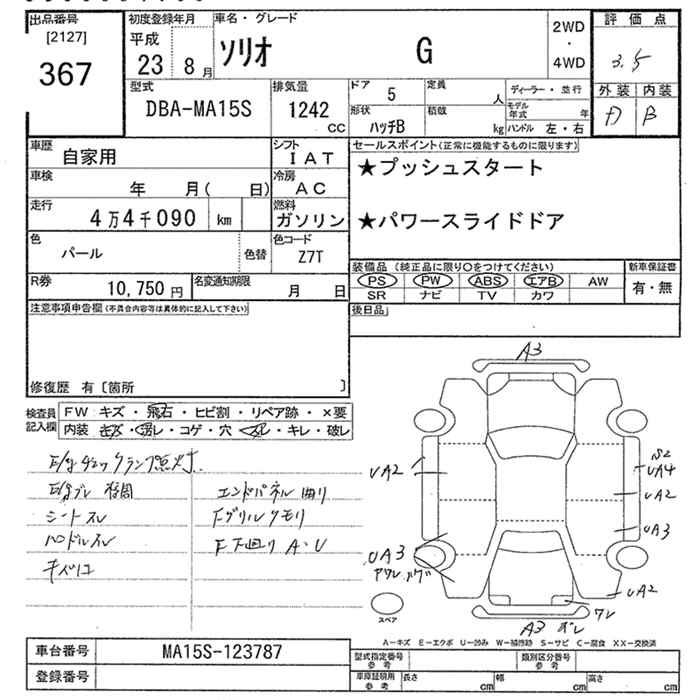 出品番号 初度登録年月 車名・グレード 2WD・4WD 評価点
[2127] 平成 ソリオ G 3.5
367 23 8月 外装 内装
型式 排気量 ドア 5 定員 人 ディーラー・並行 D B
DBA-MA15S 1242 cc 形状 ハッチB 積載 kg モデル年式 年 ハンドル 左・右
車歴 自家用 シフト IAT セールスポイント(正常に機能するものに限ります)
車検 年 月( 日) 冷房 AC ★プッシュスタート
走行 4万4千090 km 燃料 ガソリン ★パワースライドドア
色 パール 色替 色コード Z7T
装備品(純正品に限り○をつけてください) 新車保証書
R券 10,750円 名変通知期限 月 日 PS PW ABS エアB AW 有・無
SR ナビ TV カワ
注意事項申告欄(不具合内容等は具体的に記入して下さい) 後日品
修復歴 有〔箇所 〕
検査員記入欄 FW キズ・飛石・ヒビ割・リペア跡・×要
内装 キズ・汚レ・コゲ・穴・スレ・キレ・破レ
E/gチェックランプ点灯
E/gブレ
シートスレ
ハンドルスレ
キズハコ
エンドパネル曲り
Fグリルクモリ
F下廻り A・U
A3
UA2
UA3
S2
UA4
UA2
UA3
UA2
ワレ
A3
スペア
A-キズ E-エクボ U-凹み W-補修跡 S-サビ C-腐食 XX-交換済
車台番号 MA15S-123787 型式指定番号 参考 類別区分番号 参考
登録番号 車庫証明用 参考 長さ cm 幅 cm 高さ cm